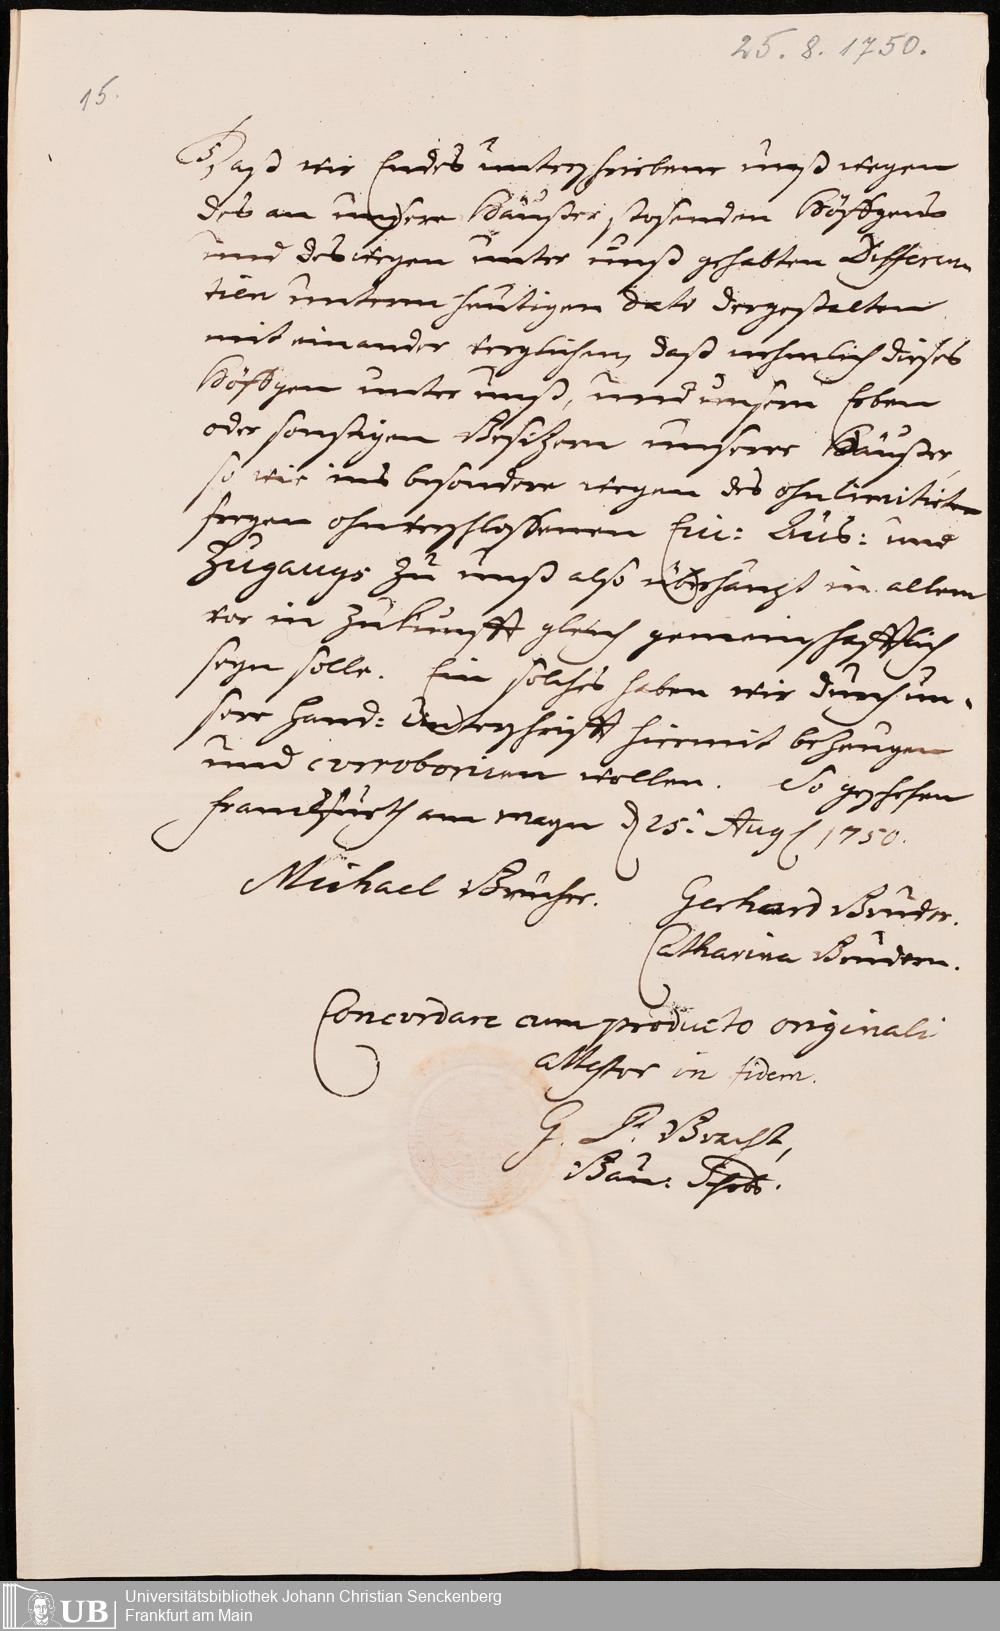 25. 8. 1750.
15.
Daß wir Endes unterschriebene unß wegen
des an unsere Häußer stosenden Höffgens
und deswegen unter unß gehabten Differen
tien unterm heutigen dato dergestalten
mit einander verglichen, daß nehmlich dieses
Höffgen unter unß, und unsern Erben
oder sonstigen Besitzern unserer Häußer,
so wie ins besondere wegen des ohnlimitirten
freyen ohnverschlossenen Ein: Aus: und
Zugangs zu unß also überhaupt in allem
vor in Zukunfft gleich gemeinschafftlich
seyn solle. Ein solches haben wir durch un-
sere Hand: Unterschrifft hiermit bezeugen
und corroboriren wollen. So geschehen
Franckfurth am Mayn d 25.t Aug. 1750.
Michael Brücher. Gerhard Bruder.
Catharina Brudern.
Concordare cum producto originali
attestor in fidem.
G. P. Bracht,
Bau:
Universitätsbibliothek Johann Christian Senckenberg
Frankfurt am Main
UB